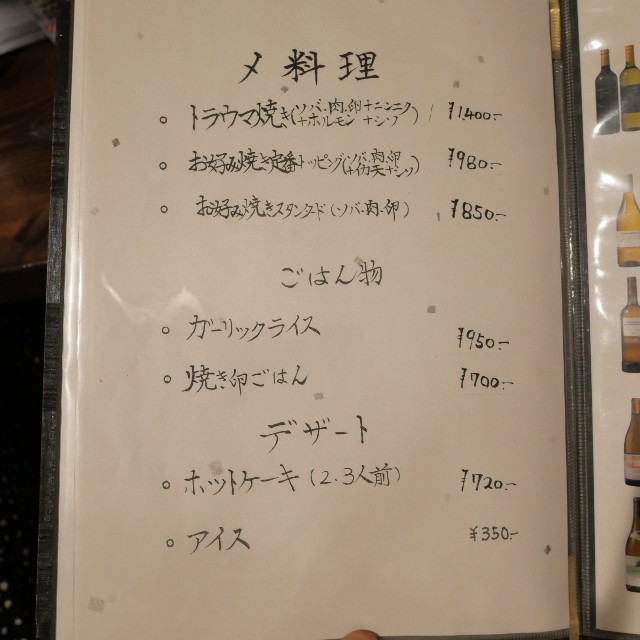 〆料理
トラウマ焼き(ソバ・肉・卵+ニンニク ¥1,400.-
+ホルモン+シソ)
お好み焼き定番トッピング(ソバ・肉・卵 ¥980.-
+イカ天+シソ)
お好み焼きスタンダード(ソバ・肉・卵) ¥850.-
ごはん物
ガーリックライス ¥950.-
焼き卵ごはん ¥700.-
デザート
ホットケーキ(2.3人前) ¥720.-
アイス ¥350.-